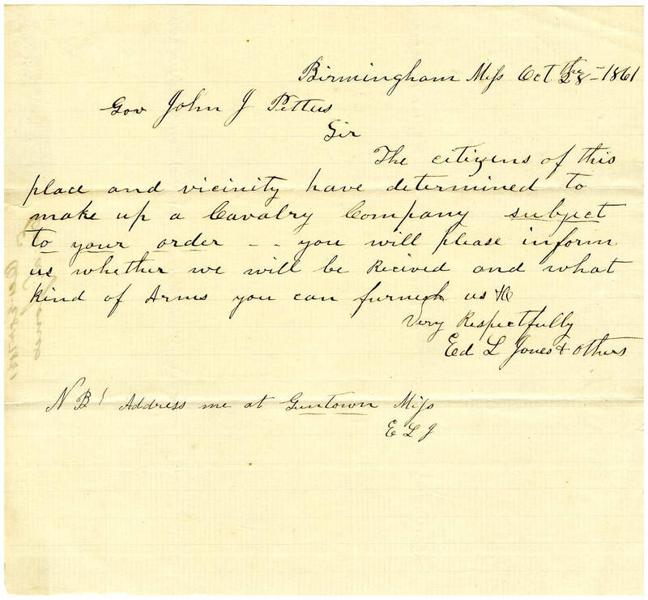 Birmingham Miss Oct 28 - 1861
Gov John J Pettus
Sir
The citizens of this
place and vicinity have determined to
make up a Cavalry Company subject
to your order - - you will please inform
us whether we will be Recived and what
kind of Arms you can furnish us &c
Very Respectfully
Ed L Jones & others
N B Address me at Guntown Miss
E L J